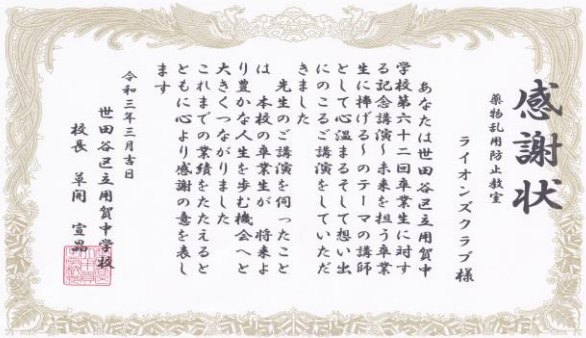 感謝状
薬物乱用防止教室
ライオンズクラブ様
あなたは世田谷区立用賀中
学校第六十二回卒業生に対す
る記念講演～未来を担う卒業
生に捧げる～のテーマの講師
として心温まるそして想い出
にのこるご講演をしていただ
きました
先生のご講演を伺ったこと
は 本校の卒業生が 将来よ
り豊かな人生を歩む機会へと
大きくつながりました
これまでの業績をたたえると
ともに心より感謝の意を表し
ます
令和三年三月吉日
世田谷区立用賀中学校
校長 草間 宣晶